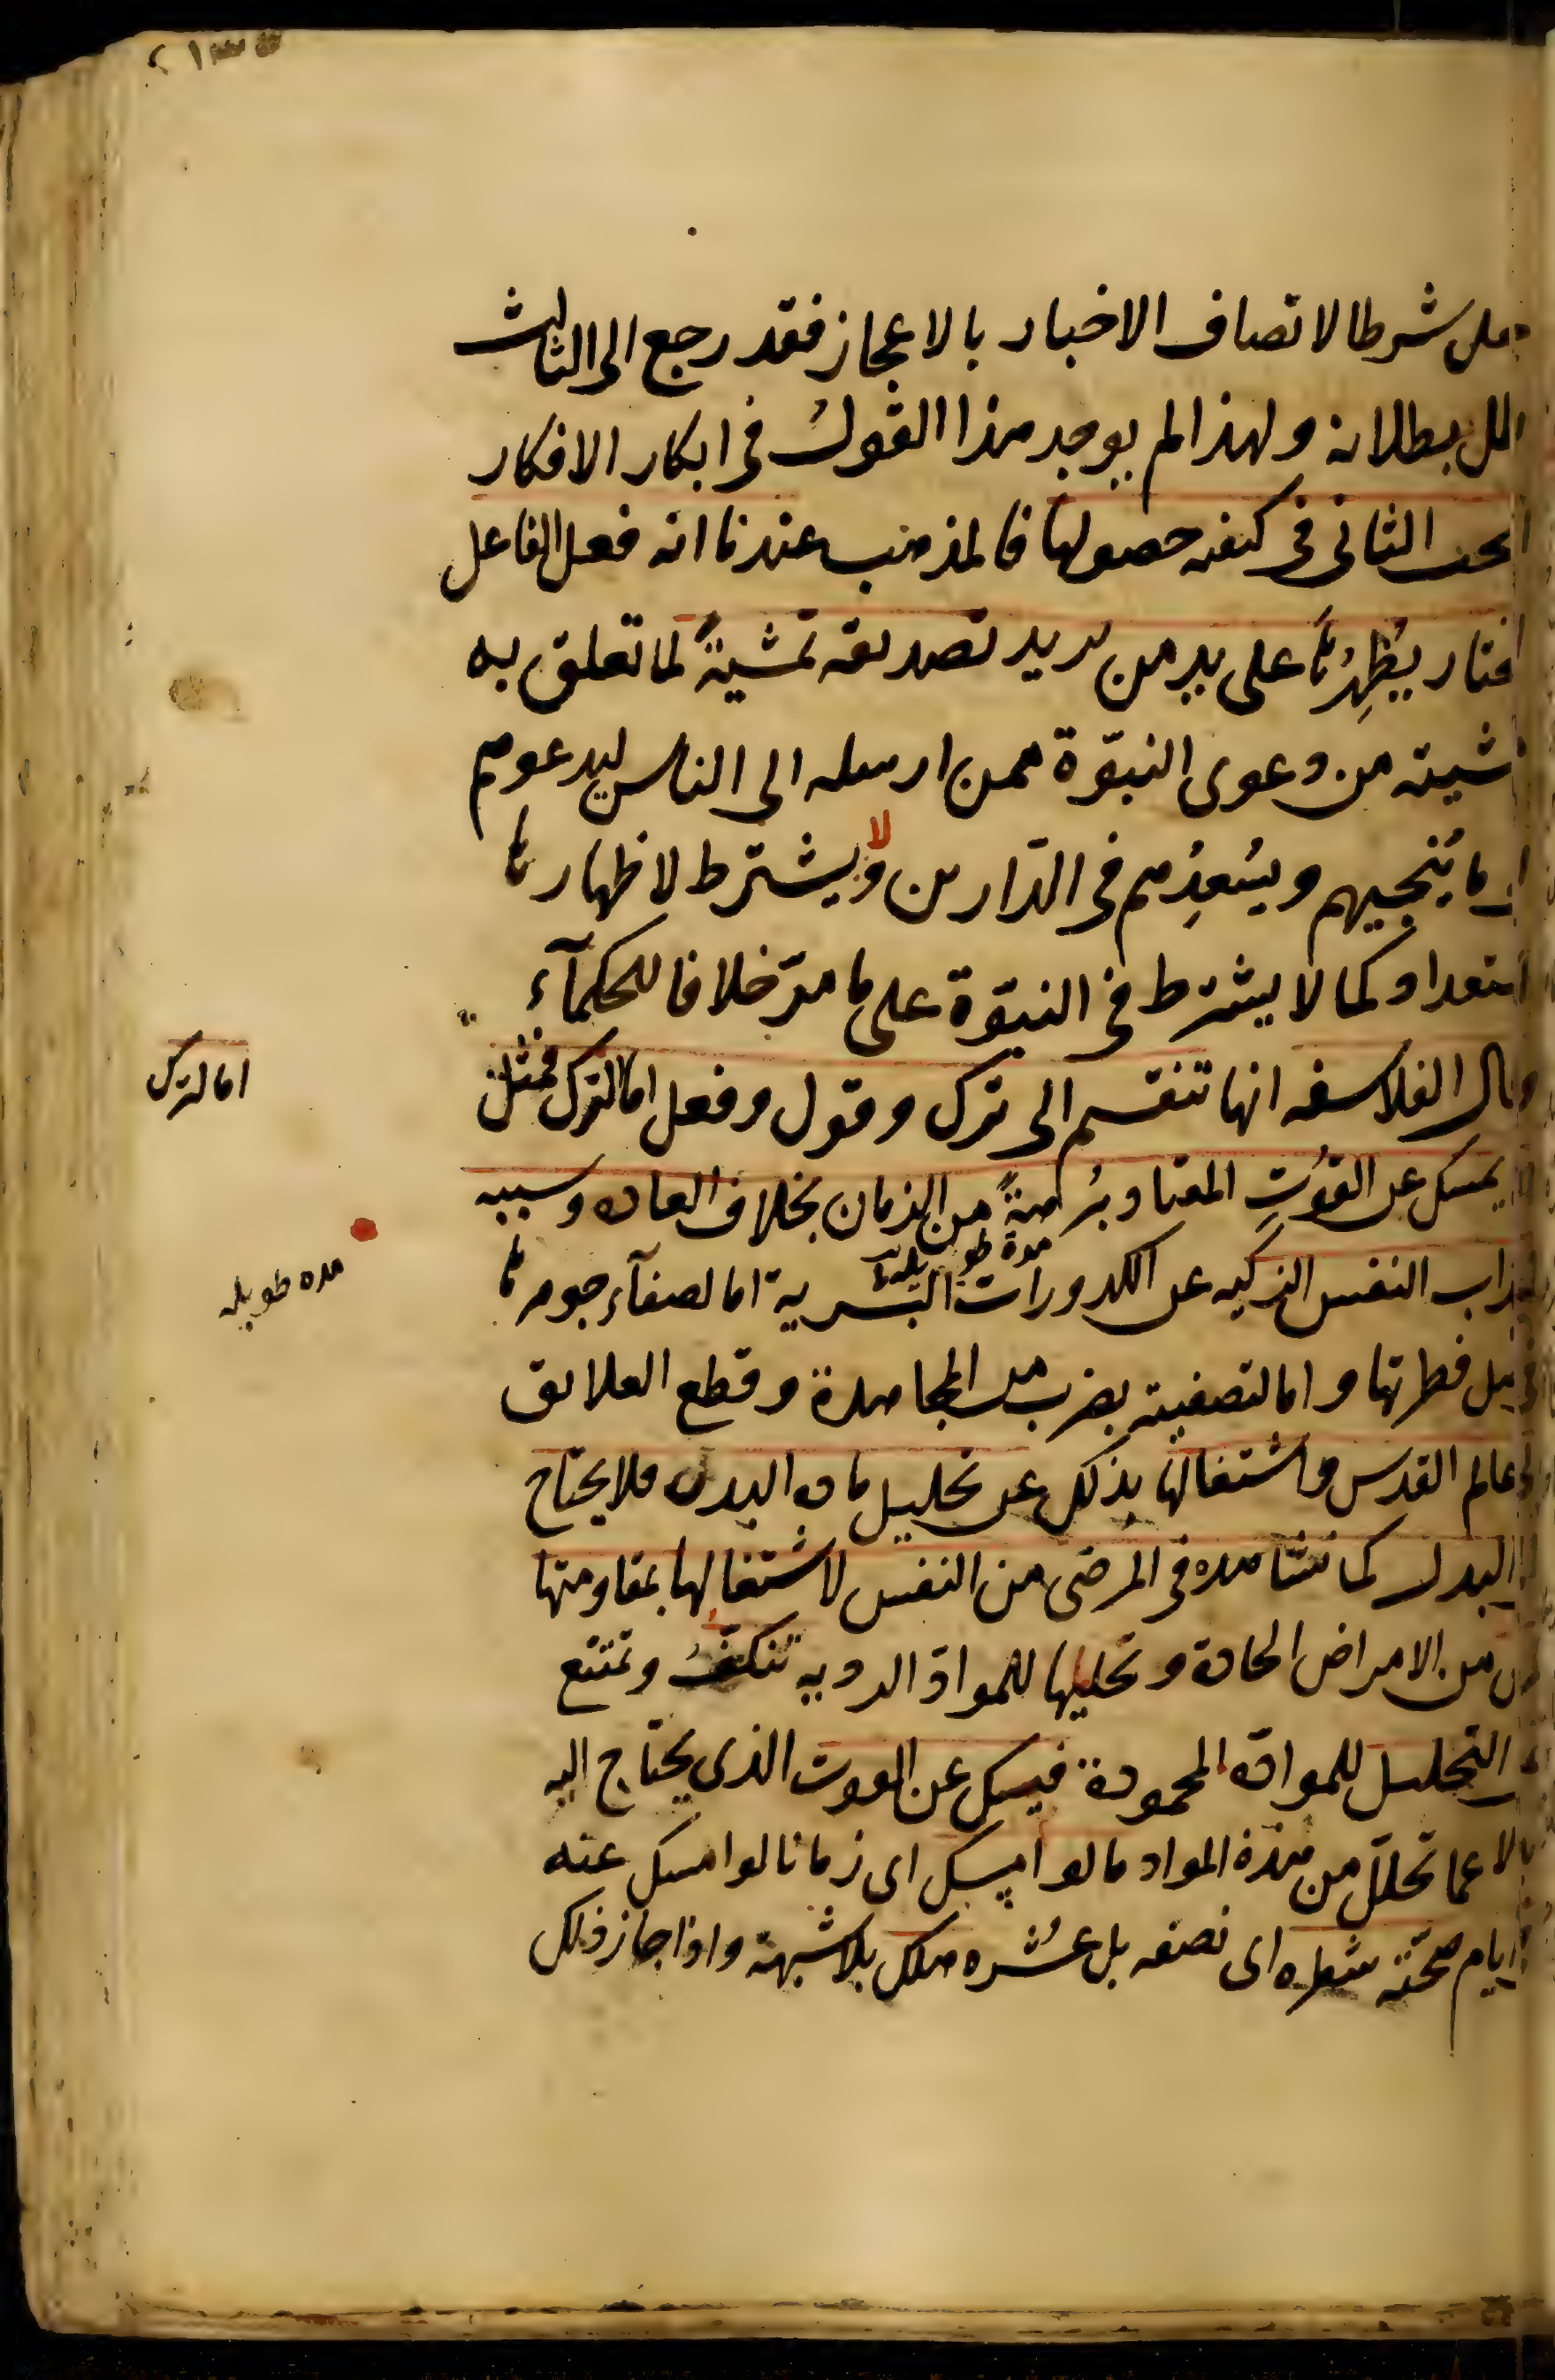 جعل شرطا لاتصاف الاخبار بالاعجاز فقد رجع الى الثالث
بطلانه ولهذا لم يوجد هذا القول فى ابكار الافكار
البحث الثانى فى كيفيه حصولها فالمذهب عندنا انه فعل الفاعل
المختار يُظهِرُها على يد من يريد تصديقه تمشيةً لما تعلق به
مشيته من دعوى النبوّة ممن ارسله الى الناس ليدعوهم
الى ما يُنجيهم ويُسعِدُهم فى الدّارين ولا يشترط لاظهارها
استعداد كما لا يشترط فى النبوّة على ما مرّ خلافا للحكمآء
وقال الفلاسفه انها تنقسم الى ترك وقول وفعل اما الترك فمثل
ان يمسك عن القوُتِ المعتاد بُرهةً من الزمان بخلاف العاده وسببه
مدة طويلة
انجذاب النفس الزكيه عن الكدورات البشرية اما لصفآء جوهرها
فى اصل فطرتها واما لتصفيته بضرب من المجاهدة وقطع العلايق
الى عالم القدس واشتغالها بذلك عن تحليل مادة البدن فلا يحتاج
الى البدل كما نشاهده فى المرضى من النفس لاشتغالها بمقاومتها
من الامراض الحادة وتحليلها للمواد الرديه تنكفُّ وتمتنع
عن التحليل للموادّ المحمودة فيمسك عن القوت الذى يحتاج اليه
بدلا عما تحلّل من هذه المواد ما لو امسك اى زمانا لو امسك عنه
فى ايام صحّته شطره اى نصفه بل عُشره هلك بلا شبهة واذا جاز ذلك
اما لترك
مده طويله